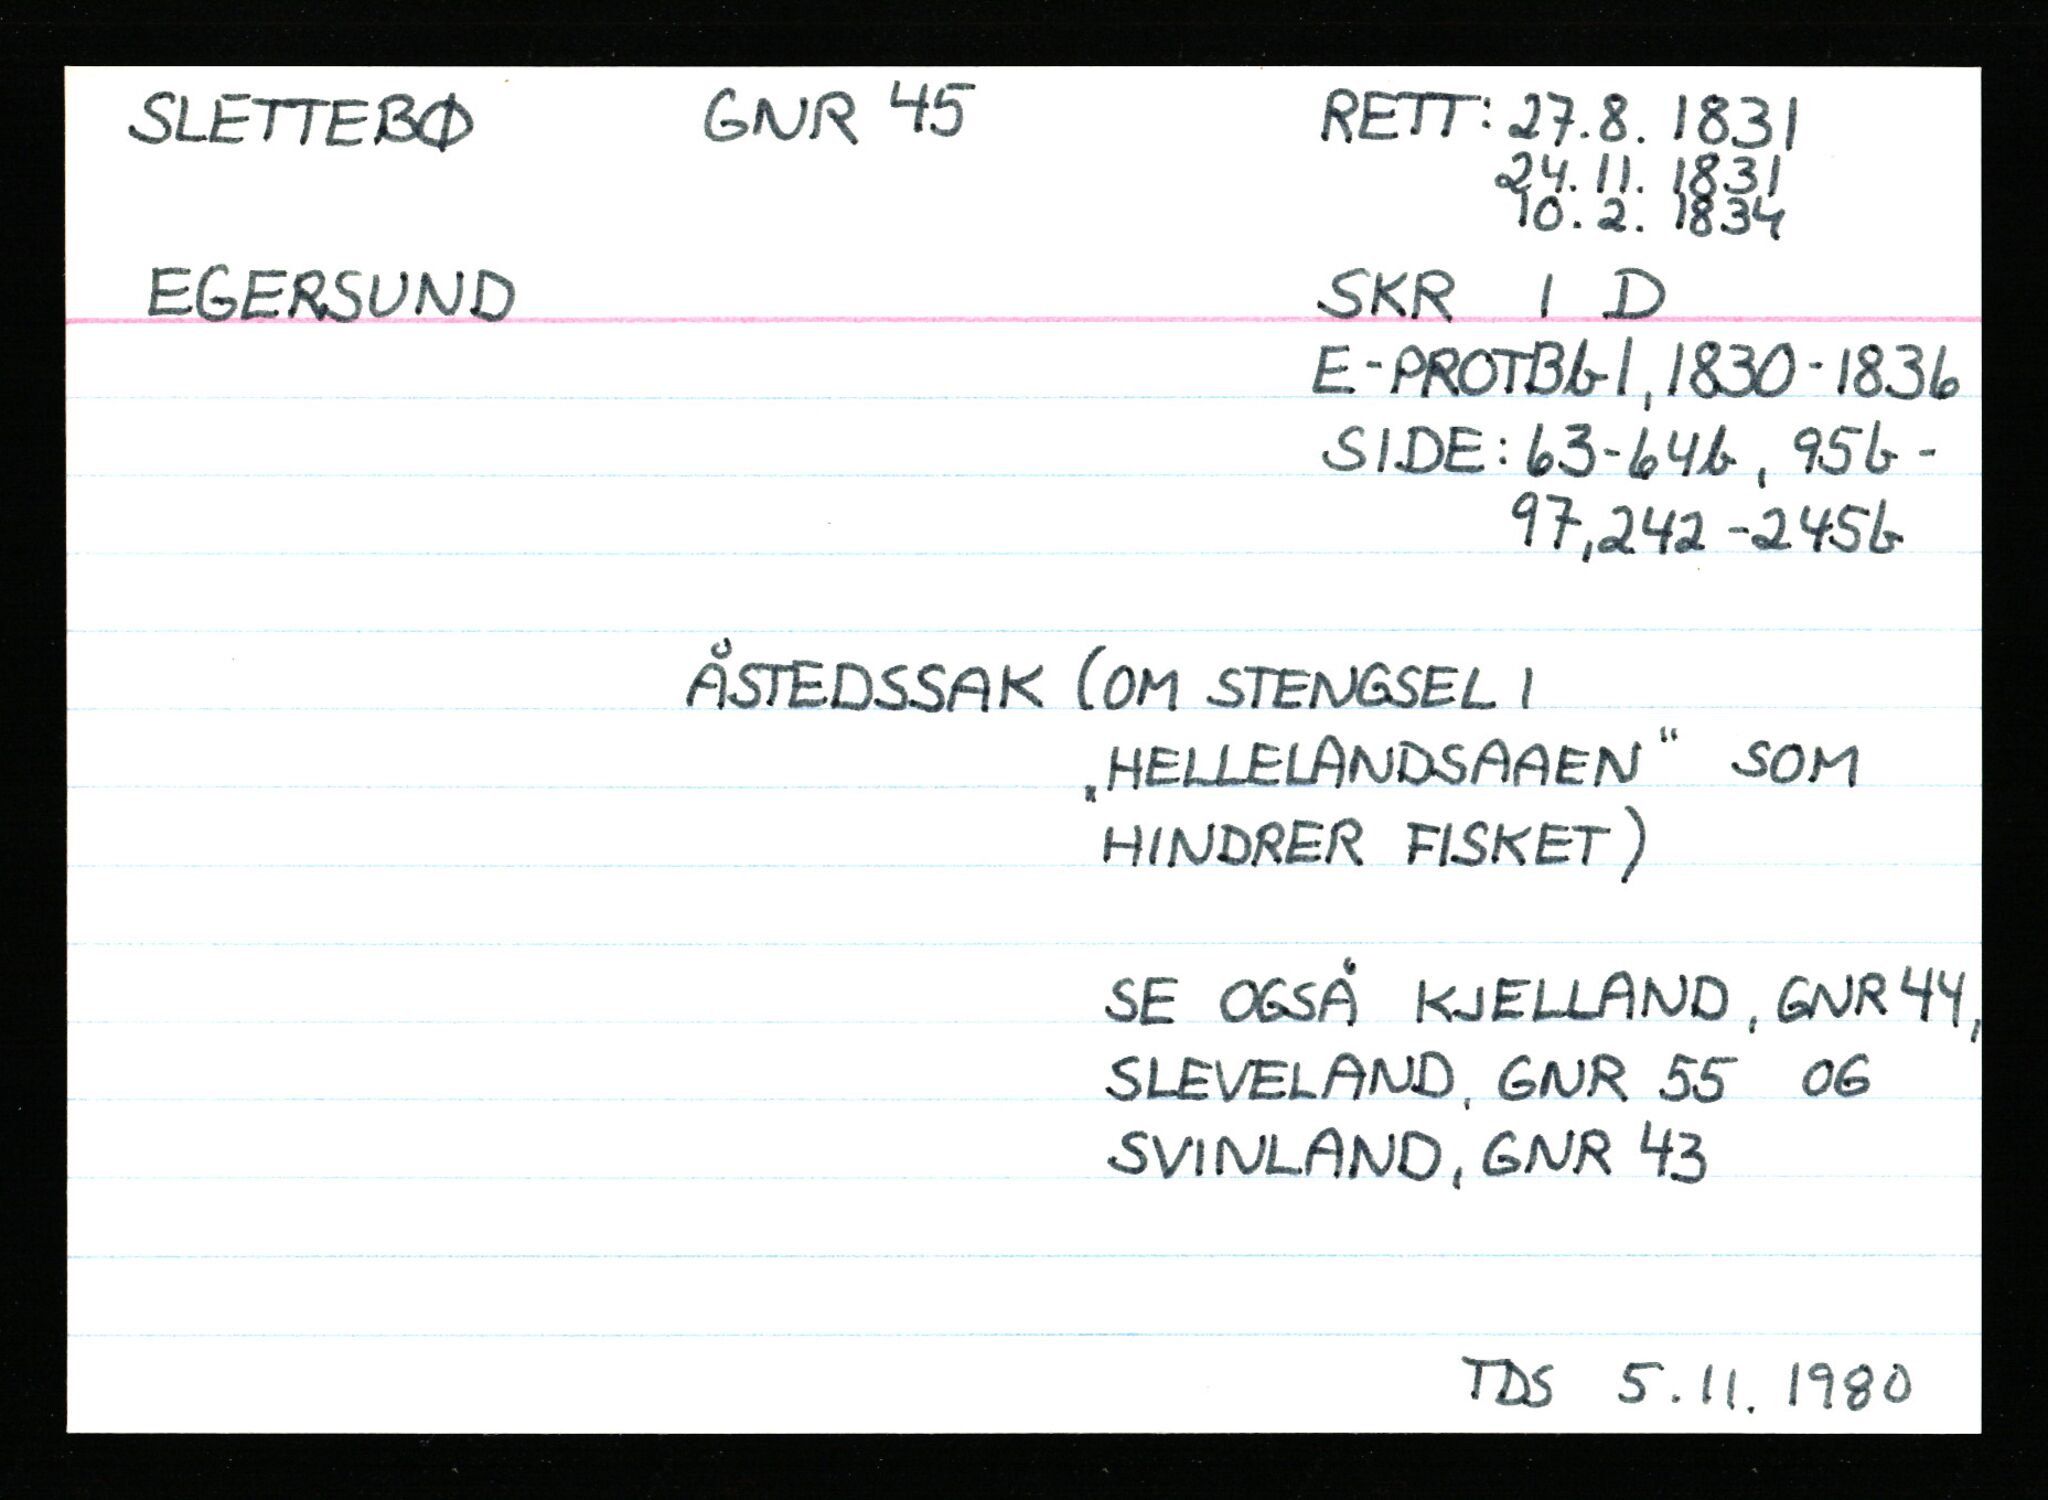 SLETTEBØ GNR 45 RETT: 27.8. 1831
24.11. 1831
10.2. 1834
EGERSUND SKR 1 D
E-PROTBb1, 1830-1836
SIDE: 63-64b, 95b-
97, 242-245b
ÅSTEDSSAK (OM STENGSEL I
„HELLELANDSAAEN“ SOM
HINDRER FISKET)
SE OGSÅ KJELLAND, GNR 44,
SLEVELAND, GNR 55 OG
SVINLAND, GNR 43
TDS 5.11. 1980